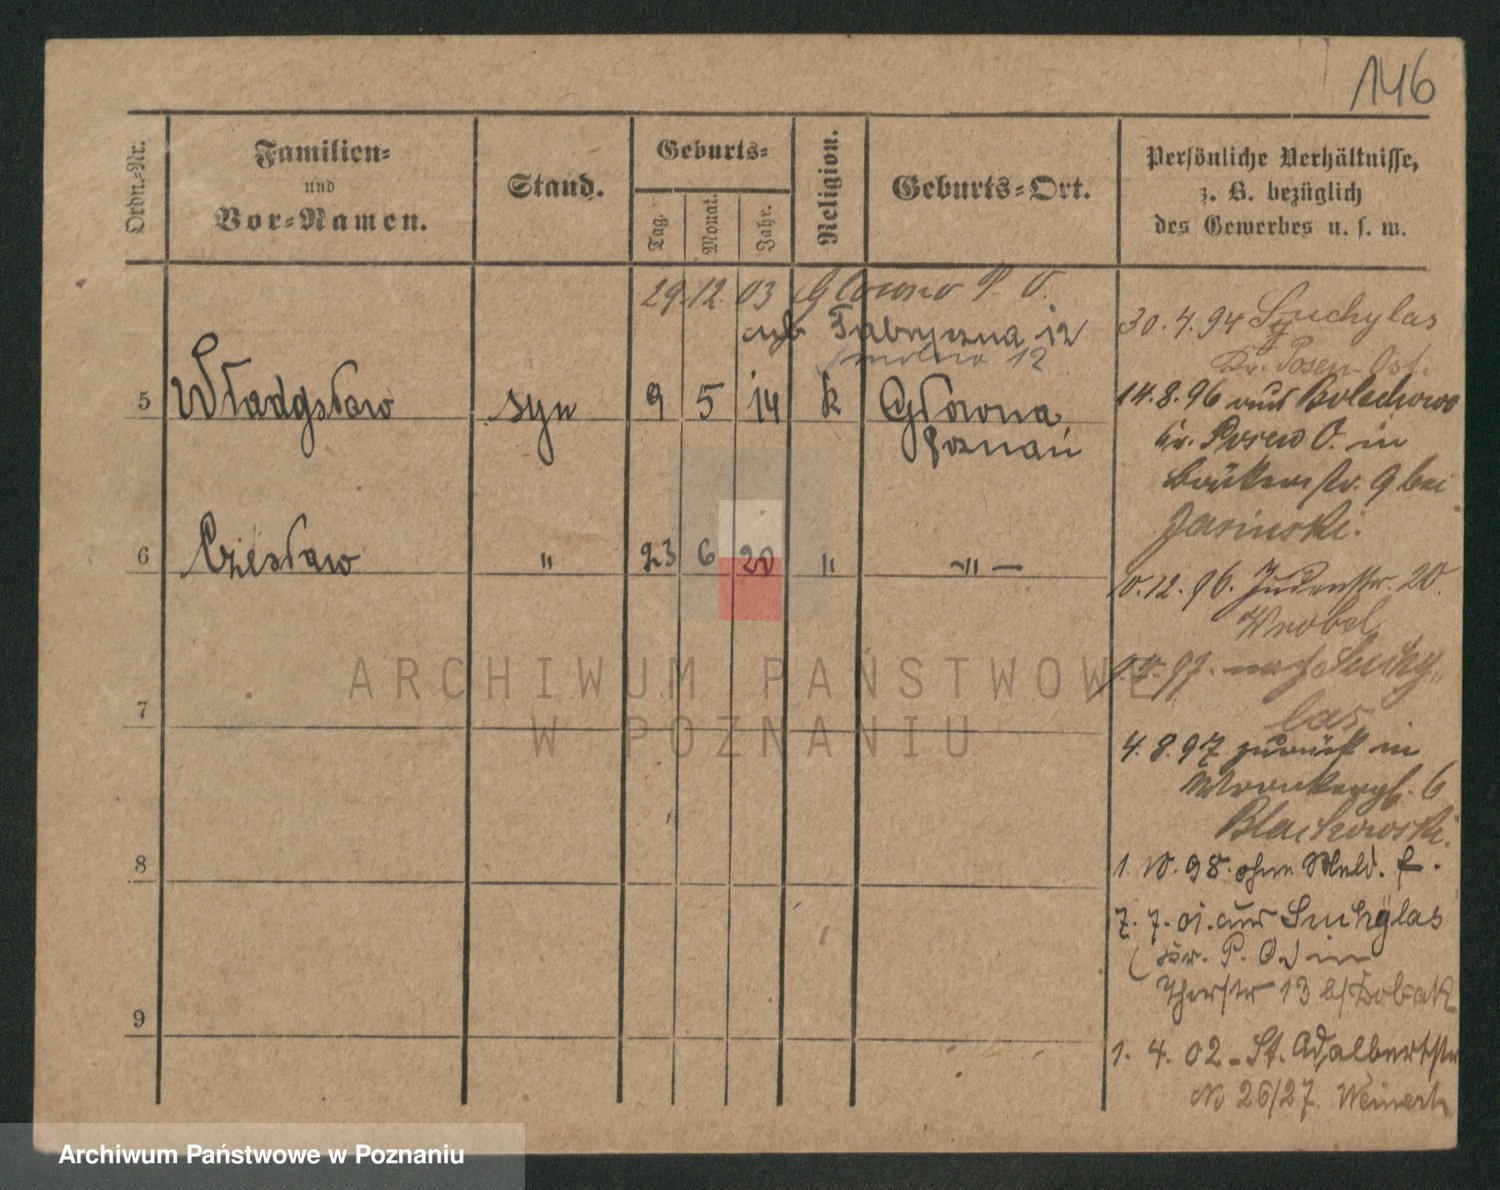 146
Ordn.-Nr.
Familien-
und
Vor-Namen.
Stand.
Geburts-
Tag.
Monat.
Jahr.
Religion.
Geburts-Ort.
Persönliche Verhältnisse,
z. B. bezüglich
des Gewerbes u. s. w.
29.12.03 Glowno P. O.
Fabryczna 12
12
5 Władysław syn 9 5 14 k Główna,
Poznań
6 Czesław " 23 6 20 " -"-
7
8
9
30.4.94 Suchylas
Kr. Posen-Ost.
14.8.96 aus Bolechowo
Kr. Posen O. in
9 bei
Jasinski.
10.12.96. Judenstr. 20.
Wrobel
97. nach Suchy-
las
4.8.97 zurück in
Wronkerpl. 6
Blachowski.
1. 10. 98. ohne Meld. f.
7. 7. 01. aus Suchylas
(Kr. P. O.) in
Thorstr 13 b/
1. 4. 02 - St. Adalbertstr
No 26/27. Weinert
ARCHIWUM PAŃSTWOWE
W POZNANIU
Archiwum Państwowe w Poznaniu